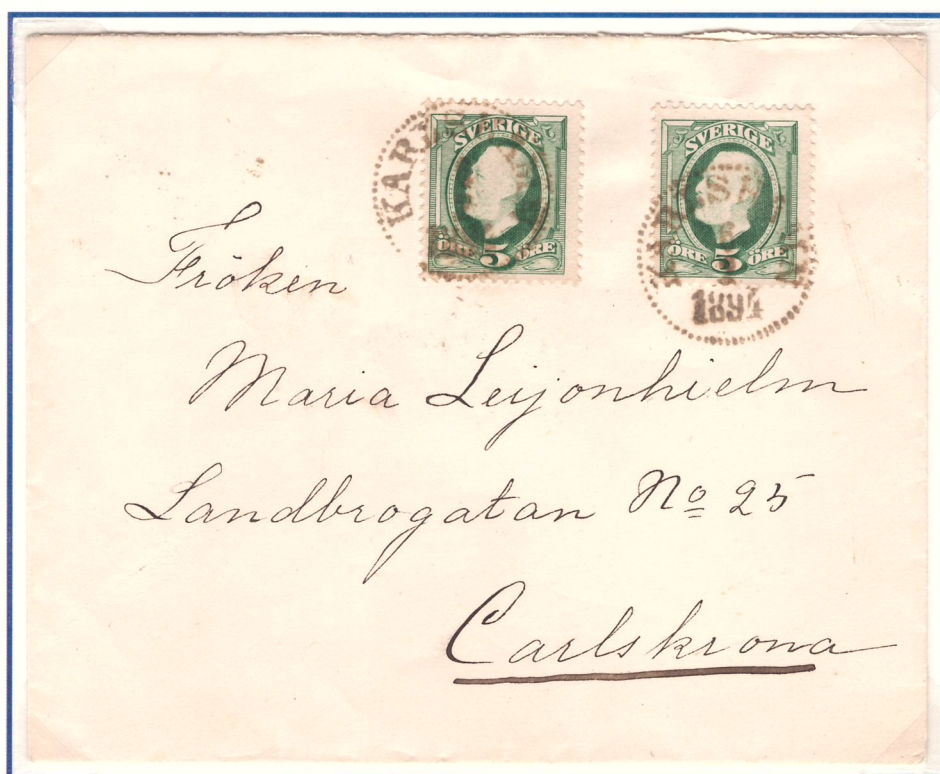 SVERIGE
ÖRE 5 ÖRE
SVERIGE
ÖRE 5 ÖRE
1894
Fröken
Maria Leijonhielm
Landbrogatan No 25
Carlskrona